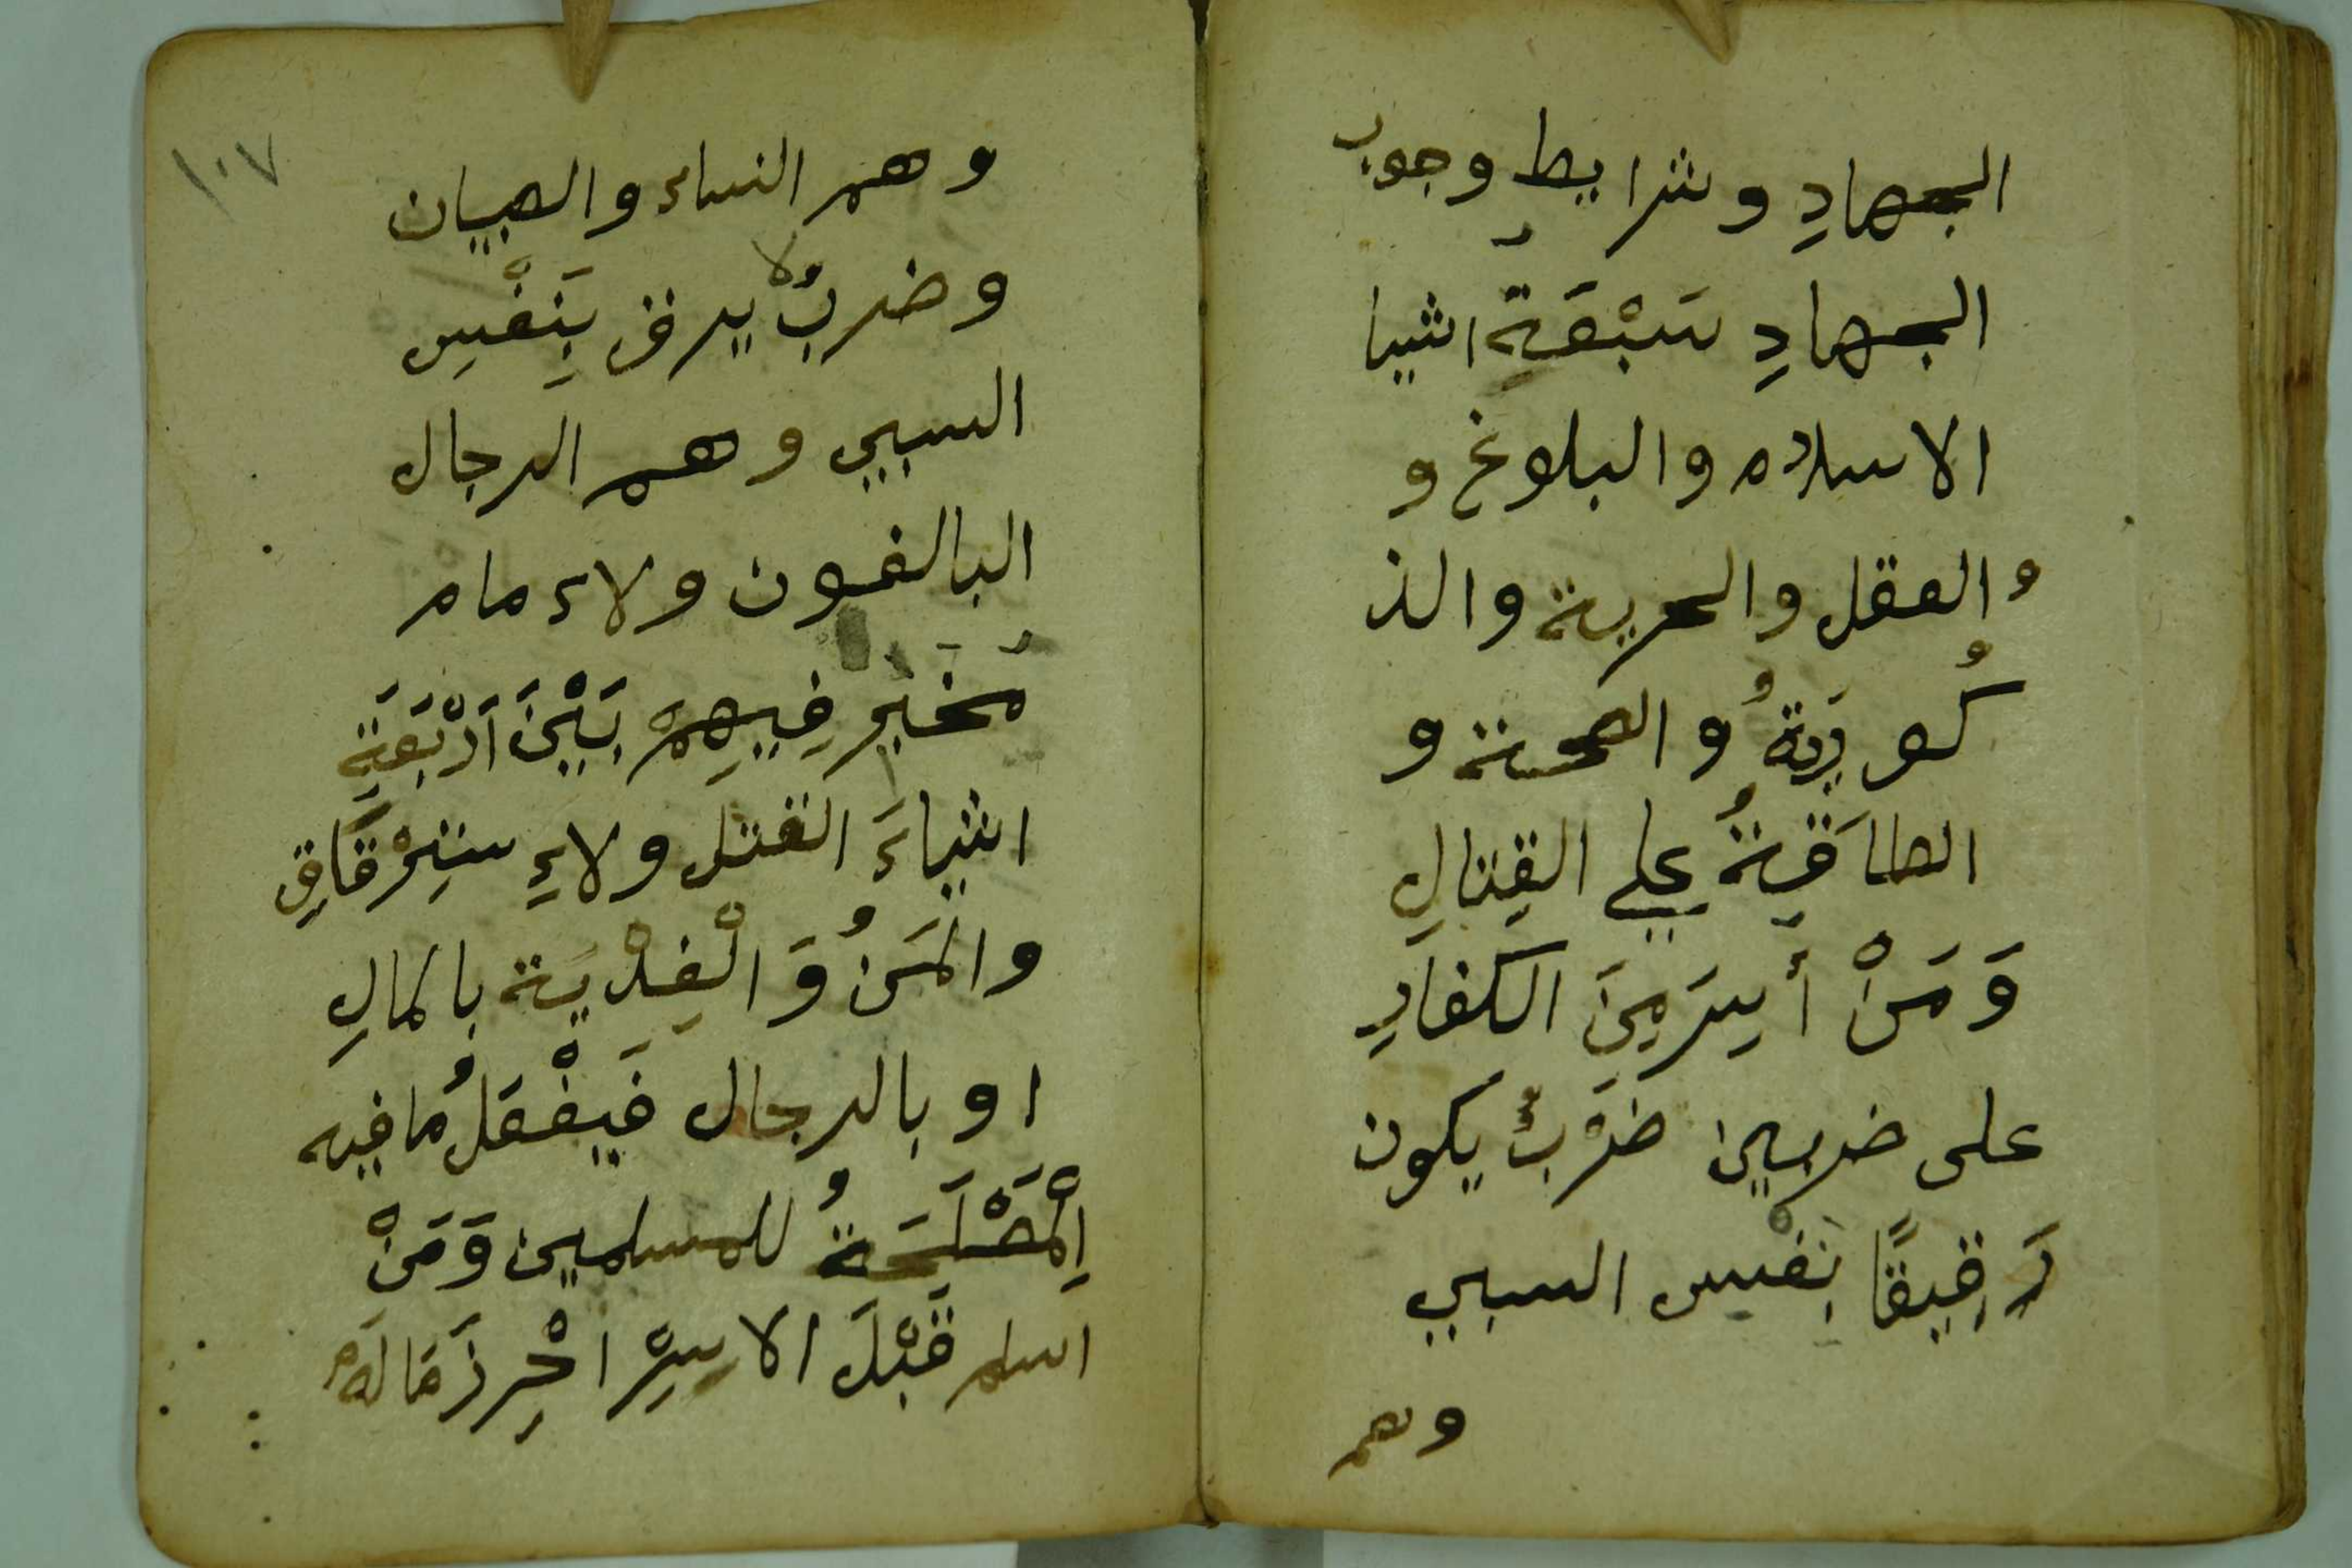 الجهادِ وشرايط وجوب
الجهادِ سَبْعَةِ اشيا
الاسلام والبلوغ و
والعقل والحرية والذ
كُورِيَةُ والصحة و
الطاقَةُ علي القِتالِ
وَمَنْ أُسِرَ مِنَ الكفارِ
على ضربين ضَرْبٌ يكون
رَقِيقًا بِنَفْسِ السبيي
وهم
١٠٧
وهم النساء والصبيان
وضربٌ لا يرق بِنَفْسِ
السبيي وهم الرجال
البالغون ولاءمام
مُخَيَر فِيهِمْ بَيْنَ اَرْبَعَةِ
اشياءَ القتل ولاءِستِرْقَاقِ
والمَنُ وَالْفِدْيَة بالمالِ
او بالرجال فَيفْعَلُ مَا فيه
اِلْمَصْلَحَةُ للمسلمين وَمَنْ
اسلم قَبْلَ الاسِرْ احْرِزَ مَا لَهُ